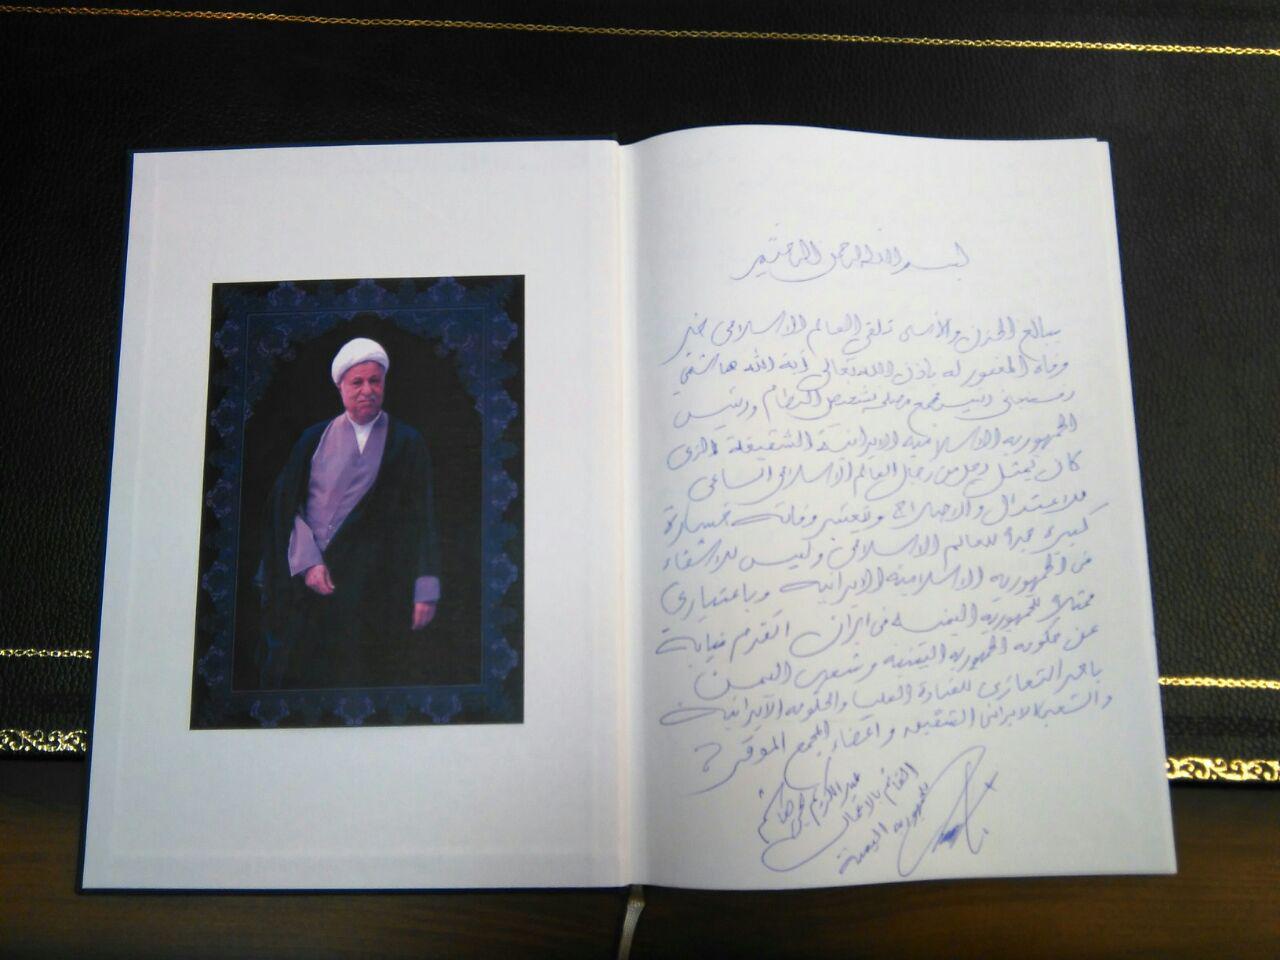 بسم الله الرحمن الرحيم
ببالغ الحزن والأسى تلقى العالم الاسلامي خبر
وفاة المغفور له باذن الله تعالى آية الله هاشمي
رفسنجاني رئيس مجمع مصلحة تشخيص النظام ورئيس
الجمهورية الاسلامية الايرانية الشقيقة الذي
كان يمثل رجل من رجال العالم الاسلامي الساعي
للاعتدال والاصلاح وتعتبر وفاته خسارة
كبيرة جداً للعالم الاسلامي وليس للاشقاء
في الجمهورية الاسلامية الايرانية وباعتباري
ممثلا للجمهورية اليمنية في ايران اتقدم نيابة
عن حكومة الجمهورية اليمنية وشعب اليمن
باحر التعازي للقيادة العليا والحكومة الايرانية
والشعب الايراني الشقيق واعضاء المجمع الموقر
عبد الكريم هاشم
القائم بالاعمال
للجمهورية اليمنية